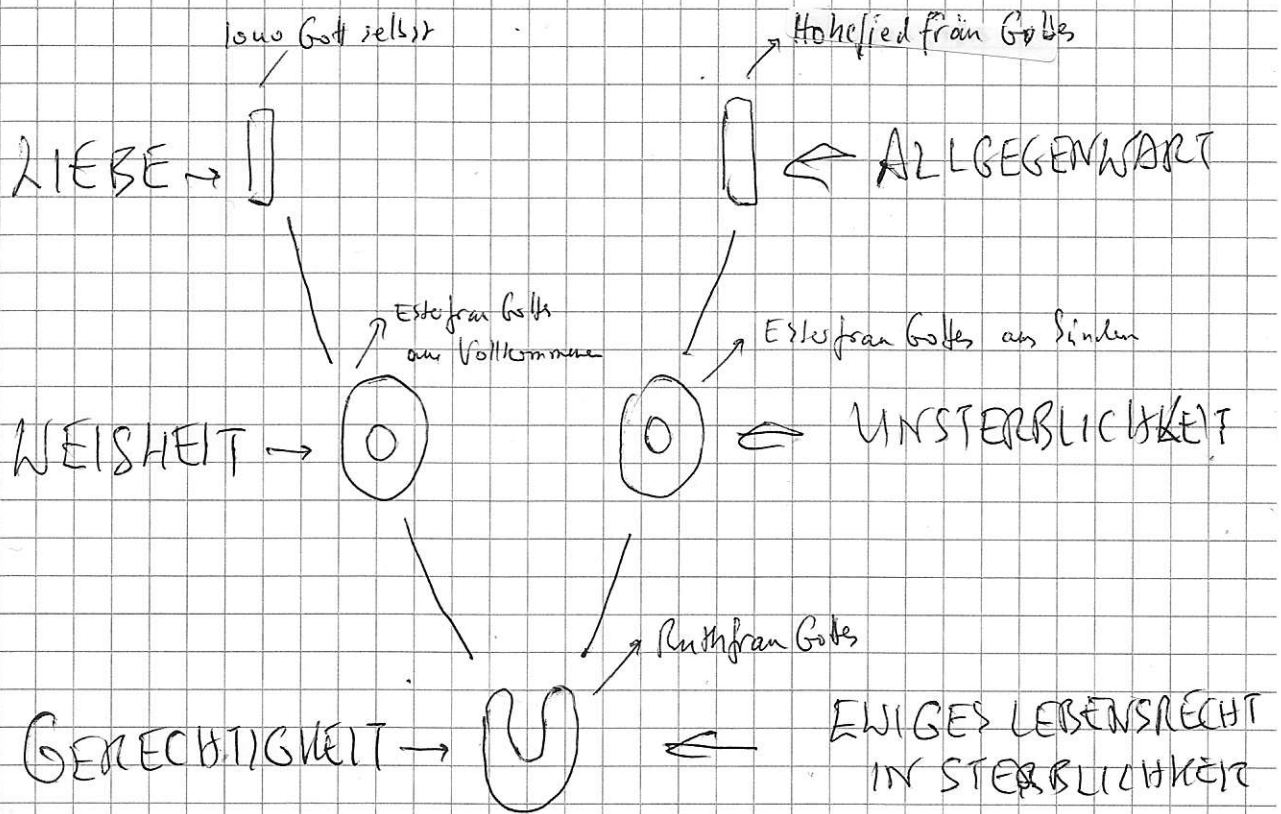 Gott selbst
Hoheliedfrau Gottes
LIEBE
ALLGEGENWART
Esterfrau Gottes
aus Vollkommene
Esterfrau Gottes aus Sünden
WEISHEIT
UNSTERBLICHKEIT
Ruthfrau Gottes
GERECHTIGKEIT
EWIGES LEBENSRECHT
IN STERBLICHKEIT